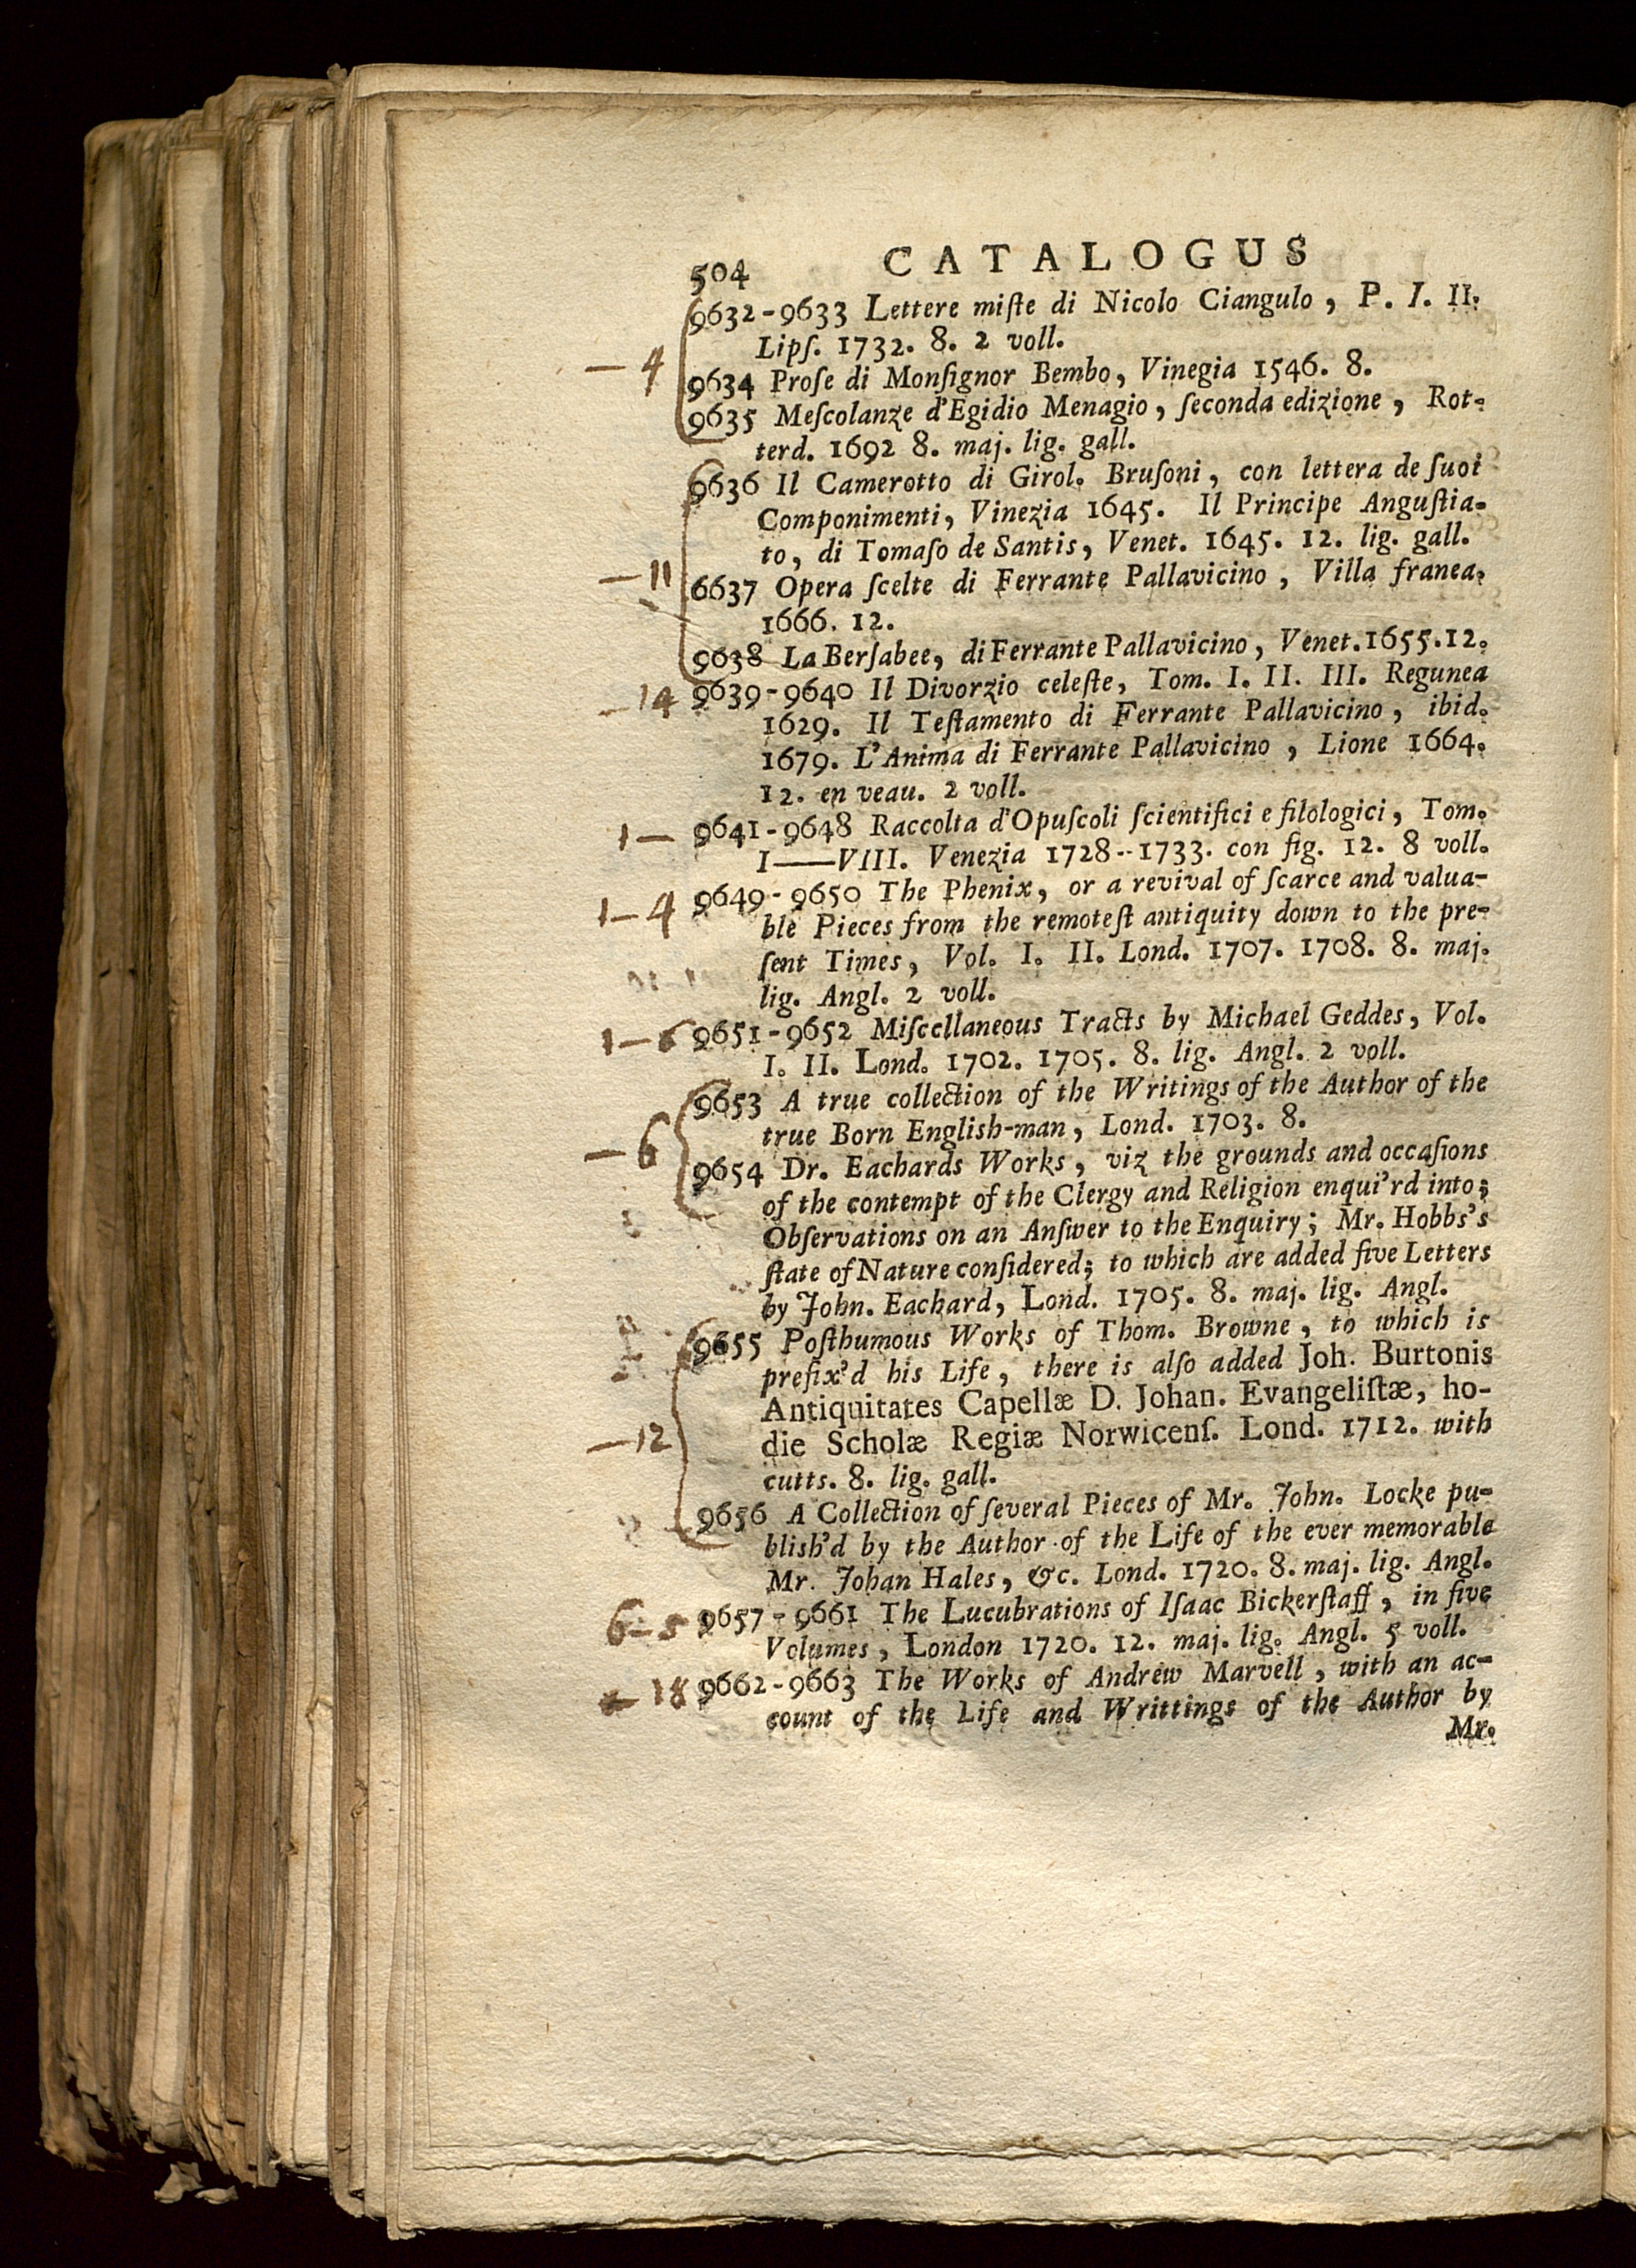 504 CATALOGUS
9632-9633 Lettere miſte di Nicolo Ciangulo, P. I. II.
Lipſ. 1732. 8. 2 voll.
— 4
9634 Proſe di Monſignor Bembo, Vinegia 1546. 8.
9635 Meſcolanze d'Egidio Menagio, ſeconda edizione, Rot-
terd. 1692 8. maj. lig. gall.
9636 Il Camerotto di Girol. Bruſoni, con lettera de ſuoi
Componimenti, Vinezia 1645. Il Principe Anguſtia-
to, di Tomaſo de Santis, Venet. 1645. 12. lig. gall.
— 11
6637 Opera ſcelte di Ferrante Pallavicino, Villa franea,
1666. 12.
9638 La Berſabee, di Ferrante Pallavicino, Venet. 1655. 12.
— 14 9639-9640 Il Divorzio celeſte, Tom. I. II. III. Regunea
1629. Il Teſtamento di Ferrante Pallavicino, ibid.
1679. L'Anima di Ferrante Pallavicino, Lione 1664.
12. en veau. 2 voll.
1 — 9641-9648 Raccolta d'Opuſcoli ſcientifici e filologici, Tom.
I——VIII. Venezia 1728--1733. con fig. 12. 8 voll.
1 — 4 9649-9650 The Phenix, or a revival of ſcarce and valua-
ble Pieces from the remoteſt antiquity down to the pre-
ſent Times, Vol. I. II. Lond. 1707. 1708. 8. maj.
lig. Angl. 2 voll.
1 — 6 9651-9652 Miſcellaneous Tracts by Michael Geddes, Vol.
I. II. Lond. 1702. 1705. 8. lig. Angl. 2 voll.
9653 A true collection of the Writings of the Author of the
true Born English-man, Lond. 1703. 8.
— 6
9654 Dr. Eachards Works, viz the grounds and occaſions
of the contempt of the Clergy and Religion enqui'rd into;
Obſervations on an Anſwer to the Enquiry; Mr. Hobbs's
ſtate of Nature conſidered; to which are added five Letters
by John. Eachard, Lond. 1705. 8. maj. lig. Angl.
9655 Poſthumous Works of Thom. Browne, to which is
prefix'd his Life, there is alſo added Joh. Burtonis
Antiquitates Capellæ D. Johan. Evangeliſtæ, ho-
die Scholæ Regiæ Norwicenſ. Lond. 1712. with
— 12
cutts. 8. lig. gall.
9656 A Collection of ſeveral Pieces of Mr. John. Locke pu-
blish'd by the Author of the Life of the ever memorable
Mr. Johan Hales, &c. Lond. 1720. 8. maj. lig. Angl.
6 — 5 9657-9661 The Lucubrations of Iſaac Bickerſtaff, in five
Volumes, London 1720. 12. maj. lig. Angl. 5 voll.
— 18 9662-9663 The Works of Andrew Marvell, with an ac-
count of the Life and Writtings of the Author by
Mr.